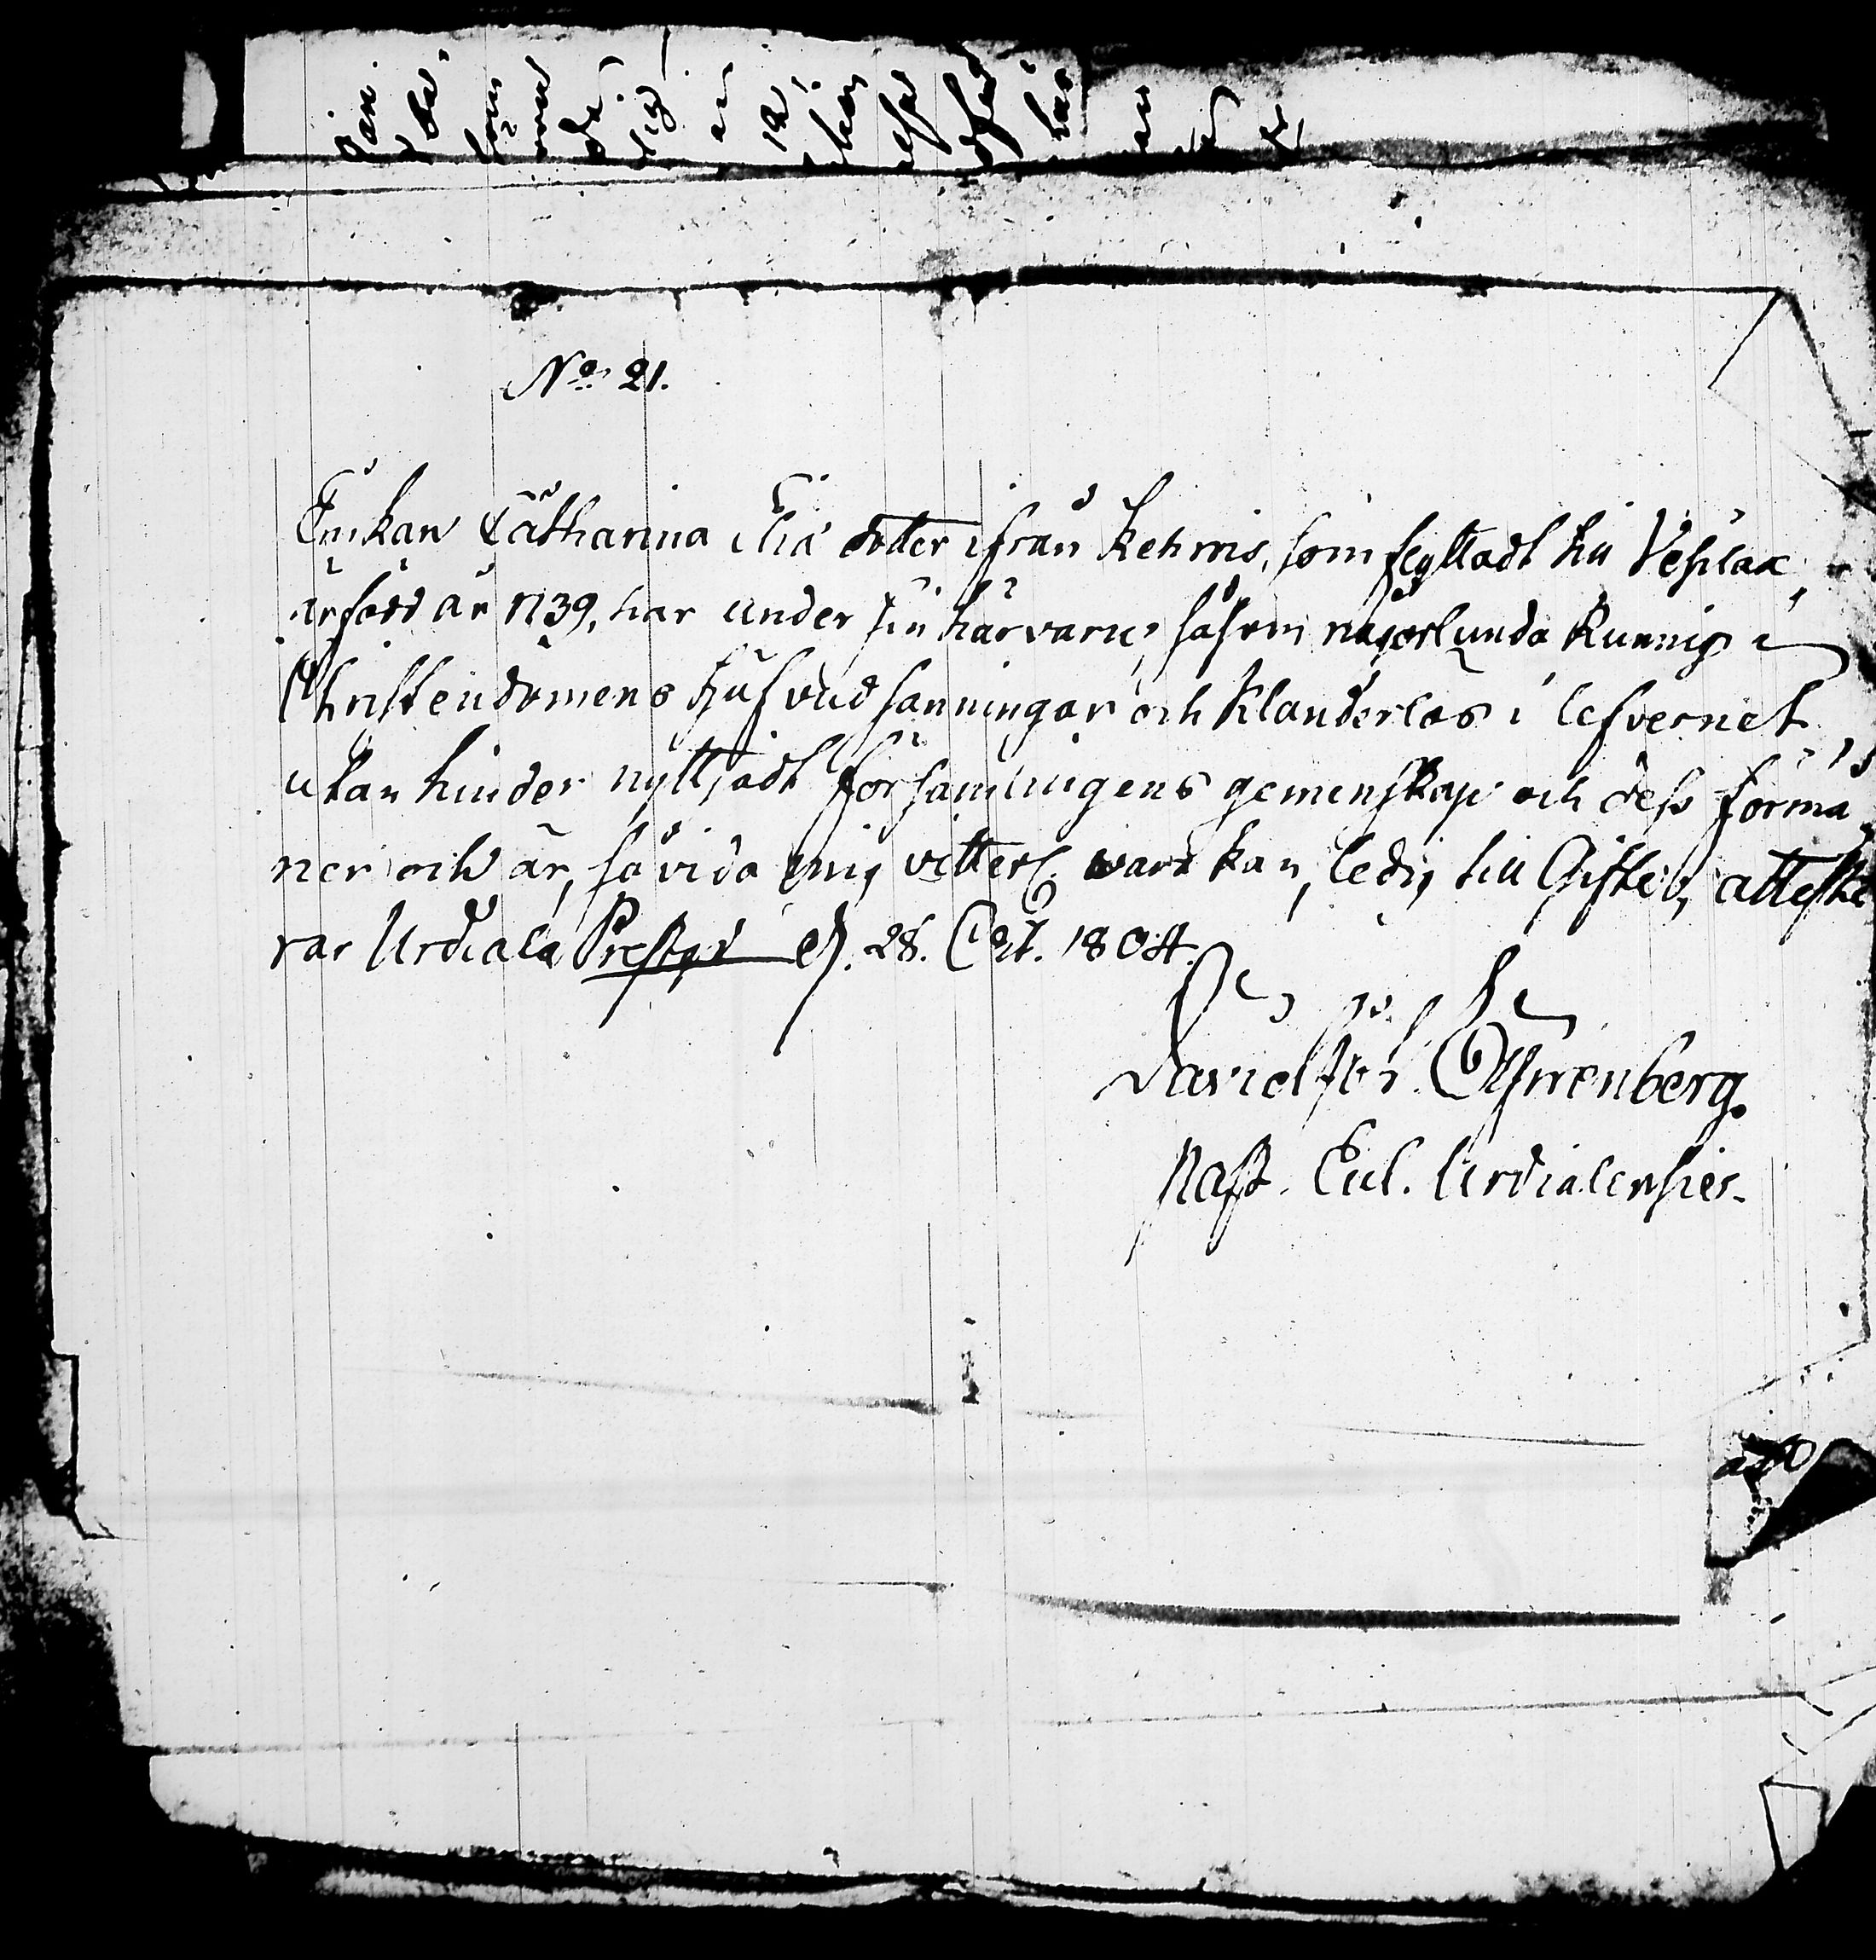 No 21.
Enkan Catharina Eliædotter ifrån Kehris, som flyttadt till Vesilax,
är född år 1739, har under sin härvaru, såsom någorlunda kunnig i
Christendomens hufvudsanningar och klanderlös i lefvernet
utan hinder nyttjadt församlingens gemenskap och dess förmå
ner och är, så vida mig vitterl. vara kan, ledig till Gifte, atteste
rar Urdiala Prestgd d. 28. Oct. 1804.
David Joh.
Past. Eccl. Urdialensis.